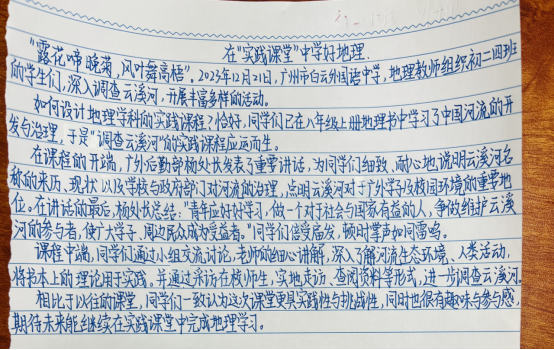 在“实践课堂”中学好地理
“露花啼晓菊，风叶舞高梧”。2023年12月21日，广州市白云外国语中学，地理教师组织初二四班
的学生们，深入调查云溪河，开展丰富多样的活动。
如何设计地理学科的实践课程？恰好，同学们已在八年级上册地理书中学习了中国河流的开
发与治理，于是“调查云溪河”的实践课程应运而生。
在课程的开端，广外后勤部杨处长发表了重要讲话，为同学们细致、耐心地说明云溪河名
称的来历、现状以及学校与政府部门对河流的治理，点明云溪河对于广外学子及校园环境的重要地
位。在讲话的最后，杨处长总结：“青年应好好学习，做一个对于社会与国家有益的人，争做维护云溪
河的参与者，使广大学子、周边民众成为受益者。”同学们倍受启发，顿时掌声如同雷鸣。
课程中端，同学们通过小组交流讨论，老师的细心讲解，深入了解河流生态环境、人类活动，
将书本上的理论用于实践。并通过采访在校师生，实地走访、查阅资料等形式，进一步调查云溪河。
相比于以往的课堂，同学们一致认为这次课堂更具实践性与挑战性，同时也很有趣味与参与感，
期待未来能继续在实践课堂中完成地理学习。